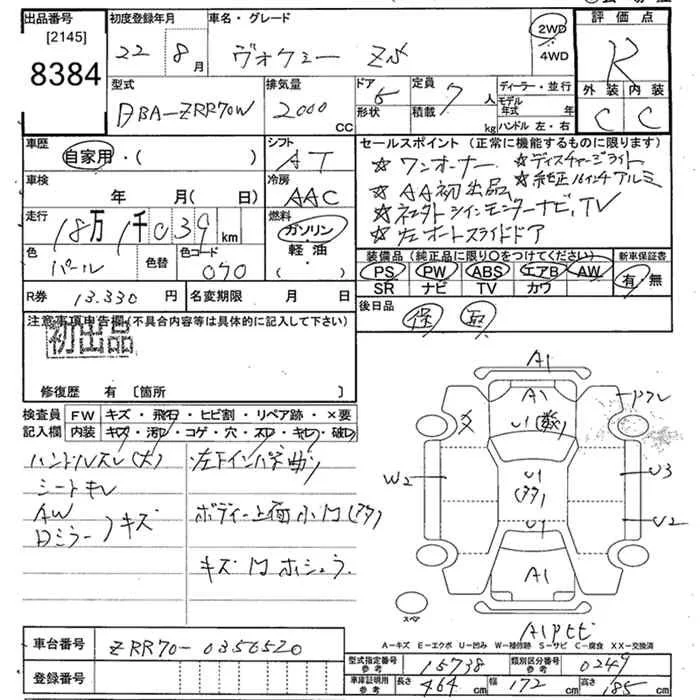 出品番号
[2145]
8384
初度登録年月
22 8月
車名・グレード
ヴォクシー ZS
2WD
4WD
評価点
R
外装 内装
C C
型式
DBA-ZRR70W
排気量
2000 CC
ドア 5
形状
定員 7 人
積載 kg
ディーラー・並行
モデル年式 年
ハンドル 左・右
車歴
自家用・( )
シフト
AT
車検
年 月(日)
冷房
AAC
走行
18万1千039 km
燃料
ガソリン
軽油
・( )
色
パール
色替
色コード
070
R券 13,330 円
名変期限 月 日
セールスポイント(正常に機能するものに限ります)
☆ワンオーナー ☆ディスチャージライト
☆AA初出品 ☆純正16インチアルミ
☆左オートスライドドア
装備品(純正品に限り○をつけてください)
PS PW ABS エアB AW
SR ナビ TV カワ
新車保証書
有・無
後日品
保
注意事項申告欄(不具合内容等は具体的に記入して下さい)
初出品
修復歴 有〔箇所
検査員記入欄
FW キズ・飛石・ヒビ割・リペア跡・×要
内装 キズ・汚レ・コゲ・穴・スレ・キレ・破レ
ハンドルスレ(大)
シートキレ
AW
Dミラー)キズ
左下インパネ曲り
ボディー上面小凹(多)
キズ凹ホシュウ
A1
A1
U1
U1
(多)
U1
A1
W2
U3
U2
スペア
A-キズ E-エクボ U-凹み W-補修跡 S-サビ C-腐食 XX-交換済
車台番号
ZRR70-0356520
登録番号
型式指定番号 参考 15738
類別区分番号 参考 0249
車庫証明用 参考 長さ 464 cm 幅 172 cm 高さ 185 cm